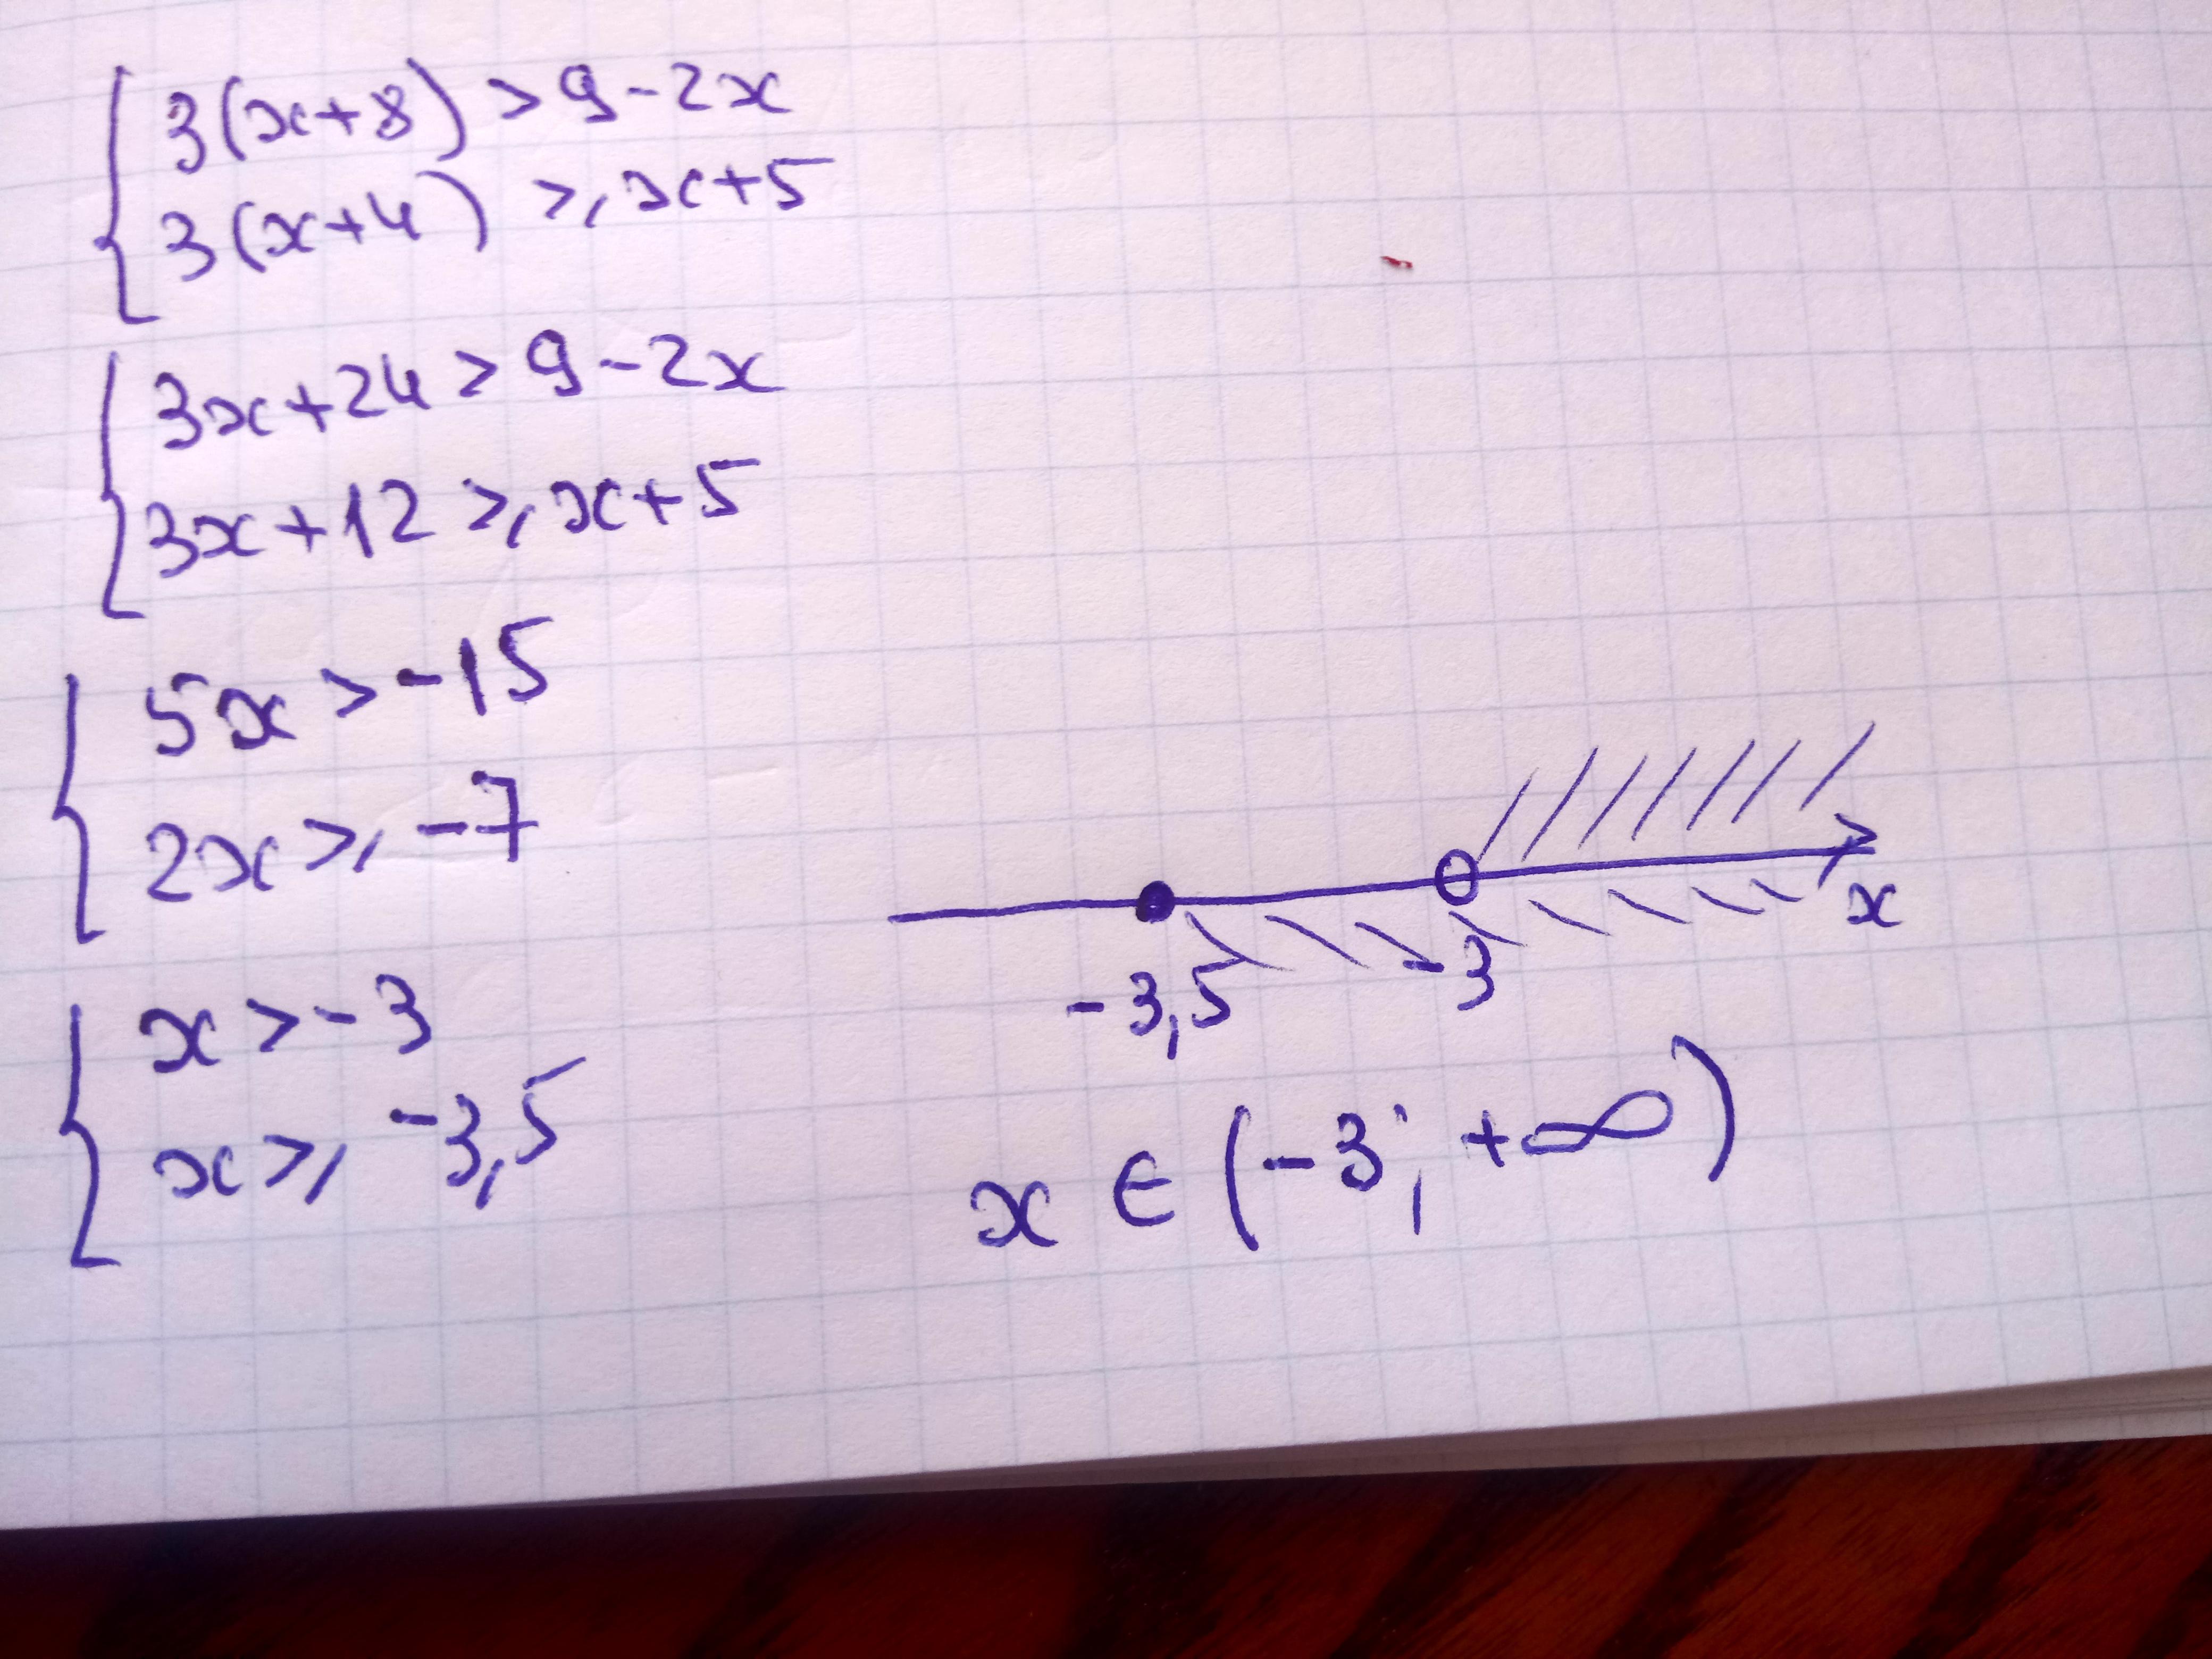 3(x+8) > 9-2x
3(x+4) ⩾ x+5
3x+24 > 9-2x
3x+12 ⩾ x+5
5x > -15
2x ⩾ -7
x > -3
x ⩾ -3,5
-3,5 -3 x
x ∈ (-3; +∞)